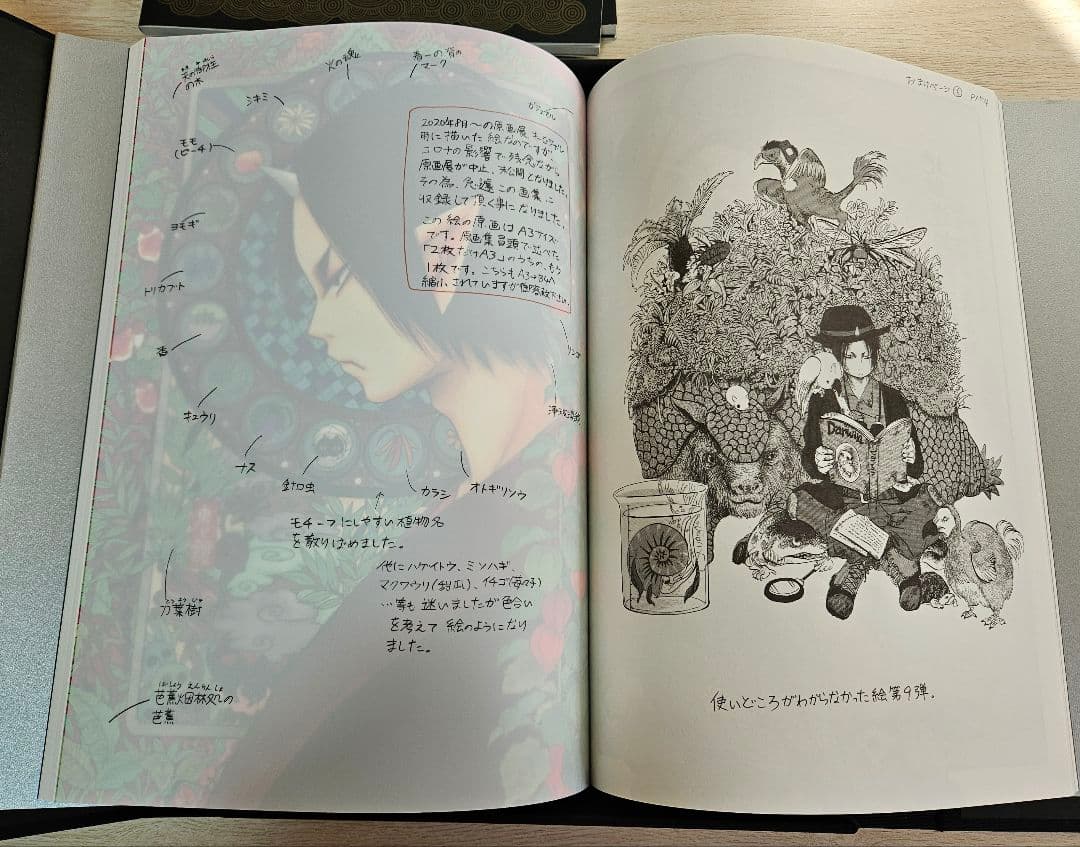 の木
シキミ
火の魂
蒼一の背の
マーク
モモ
(ピーチ)
ヨモギ
トリカブト
香
キュウリ
ナス
針口虫
カラシ
オトギリソウ
リンゴ
2020年8月〜の原画展
用に描いた絵なのですが
コロナの影響で残念ながら
原画展が中止、未公開となりました。
その為、急遽この画集に
収録して頂く事になりました。
この絵の原画はA3サイズ
です。原画集冒頭で述べた
「2枚だけA3」のうちの、もう
1枚です。こちらもA3→B4へ
縮小されていますが御容赦下さい。
モチーフにしやすい植物名
を散りばめました。
他にハゲイトウ、ミソハギ、
マクワウリ(甜瓜)、イチゴ(苺)
…等も迷いましたが色合い
を考えて絵のようになり
ました。
とうようじゅ
刀葉樹
ばしょうえんりんしょ
芭蕉畑林処の
芭蕉
おまけページ⑤ P174
Darwin
使いどころがわからなかった絵第9弾.